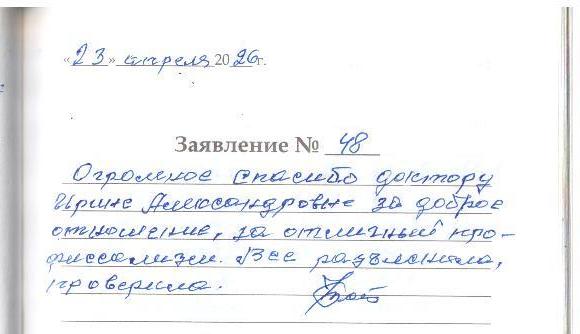 «23» апреля 2026г.
Заявление № 48
Огромное спасибо доктору
Ирине Александровне за доброе
отношение, за отличный про-
фессализм. Все разъяснила,
проверила.